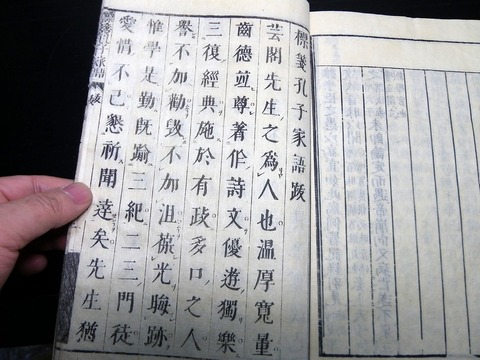 標箋孔子家語跋
芸閣先生之爲人也溫厚寬量
齒德並尊著作詩文優遊獨樂
三復經典施於有政多口之人
譽不加勸毀不加沮葆光晦跡
惟學是勤既踰三紀二三門徒
愛惜不已懇祈聞達矣先生猶
孔子家語 跋